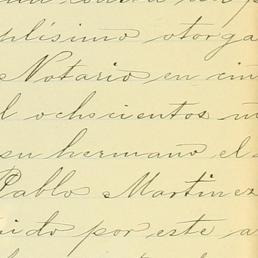 plísimo otorga
Notario en cin
l ochscientos n
su hermano el S
Pablo Martinez
uido por este a